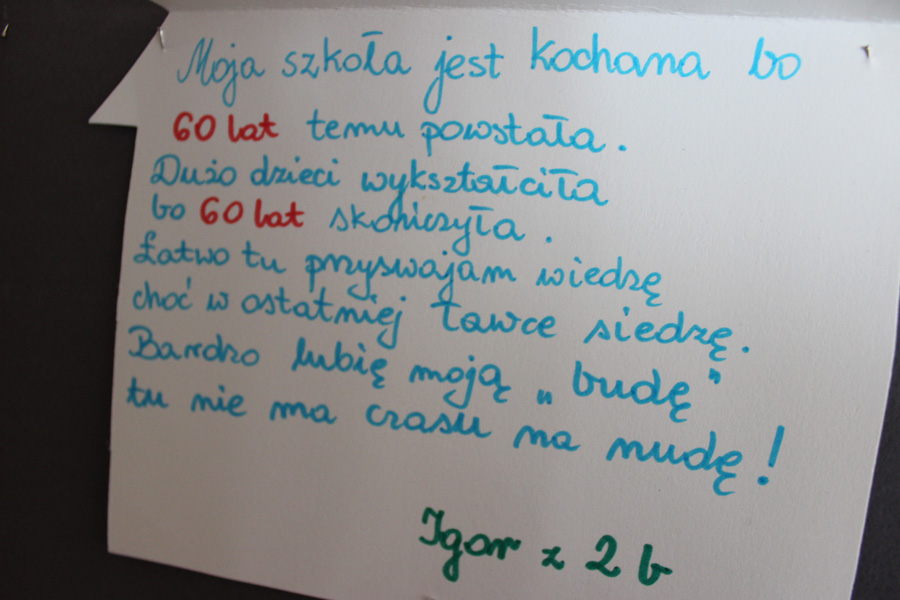 Moja szkoła jest kochana bo
60 lat temu powstała.
Dużo dzieci wykształciła
bo 60 lat skończyła.
Łatwo tu przyswajam wiedzę
choć w ostatniej ławce siedzę.
Bardzo lubię moją „budę”
tu nie ma czasu na nudę!
Igor z 2 b